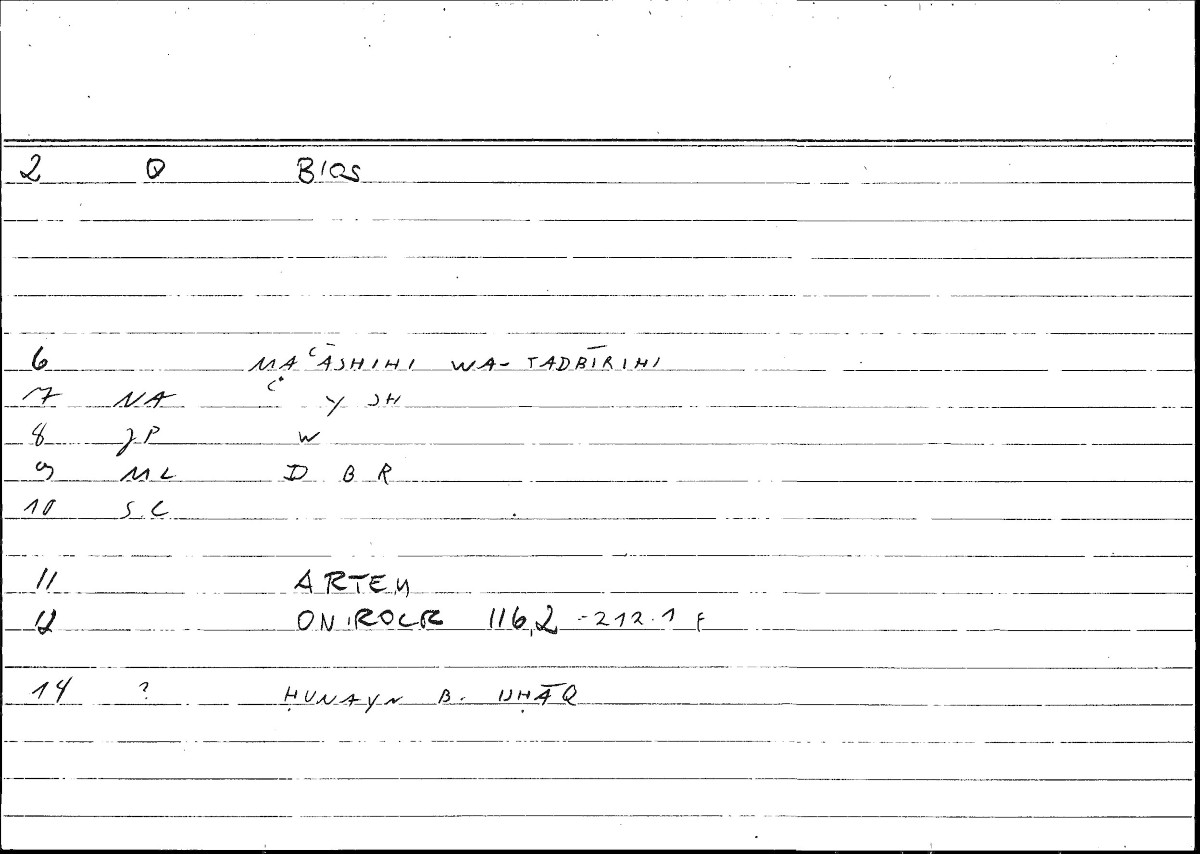 2 Q BIOS
6 MAʿĀSHIHI WA-TADBĪRIHI
7 NA ʿ Y SH
8 JP W
9 ML D B R
10 S.C
11 ARTEM
12 ONIROCR 116,2 -212.1 F
14 ? ḤUNAYN B. ISḤĀQ